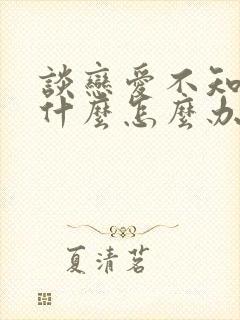 談戀愛不知
什麼怎麼办
夏清茗